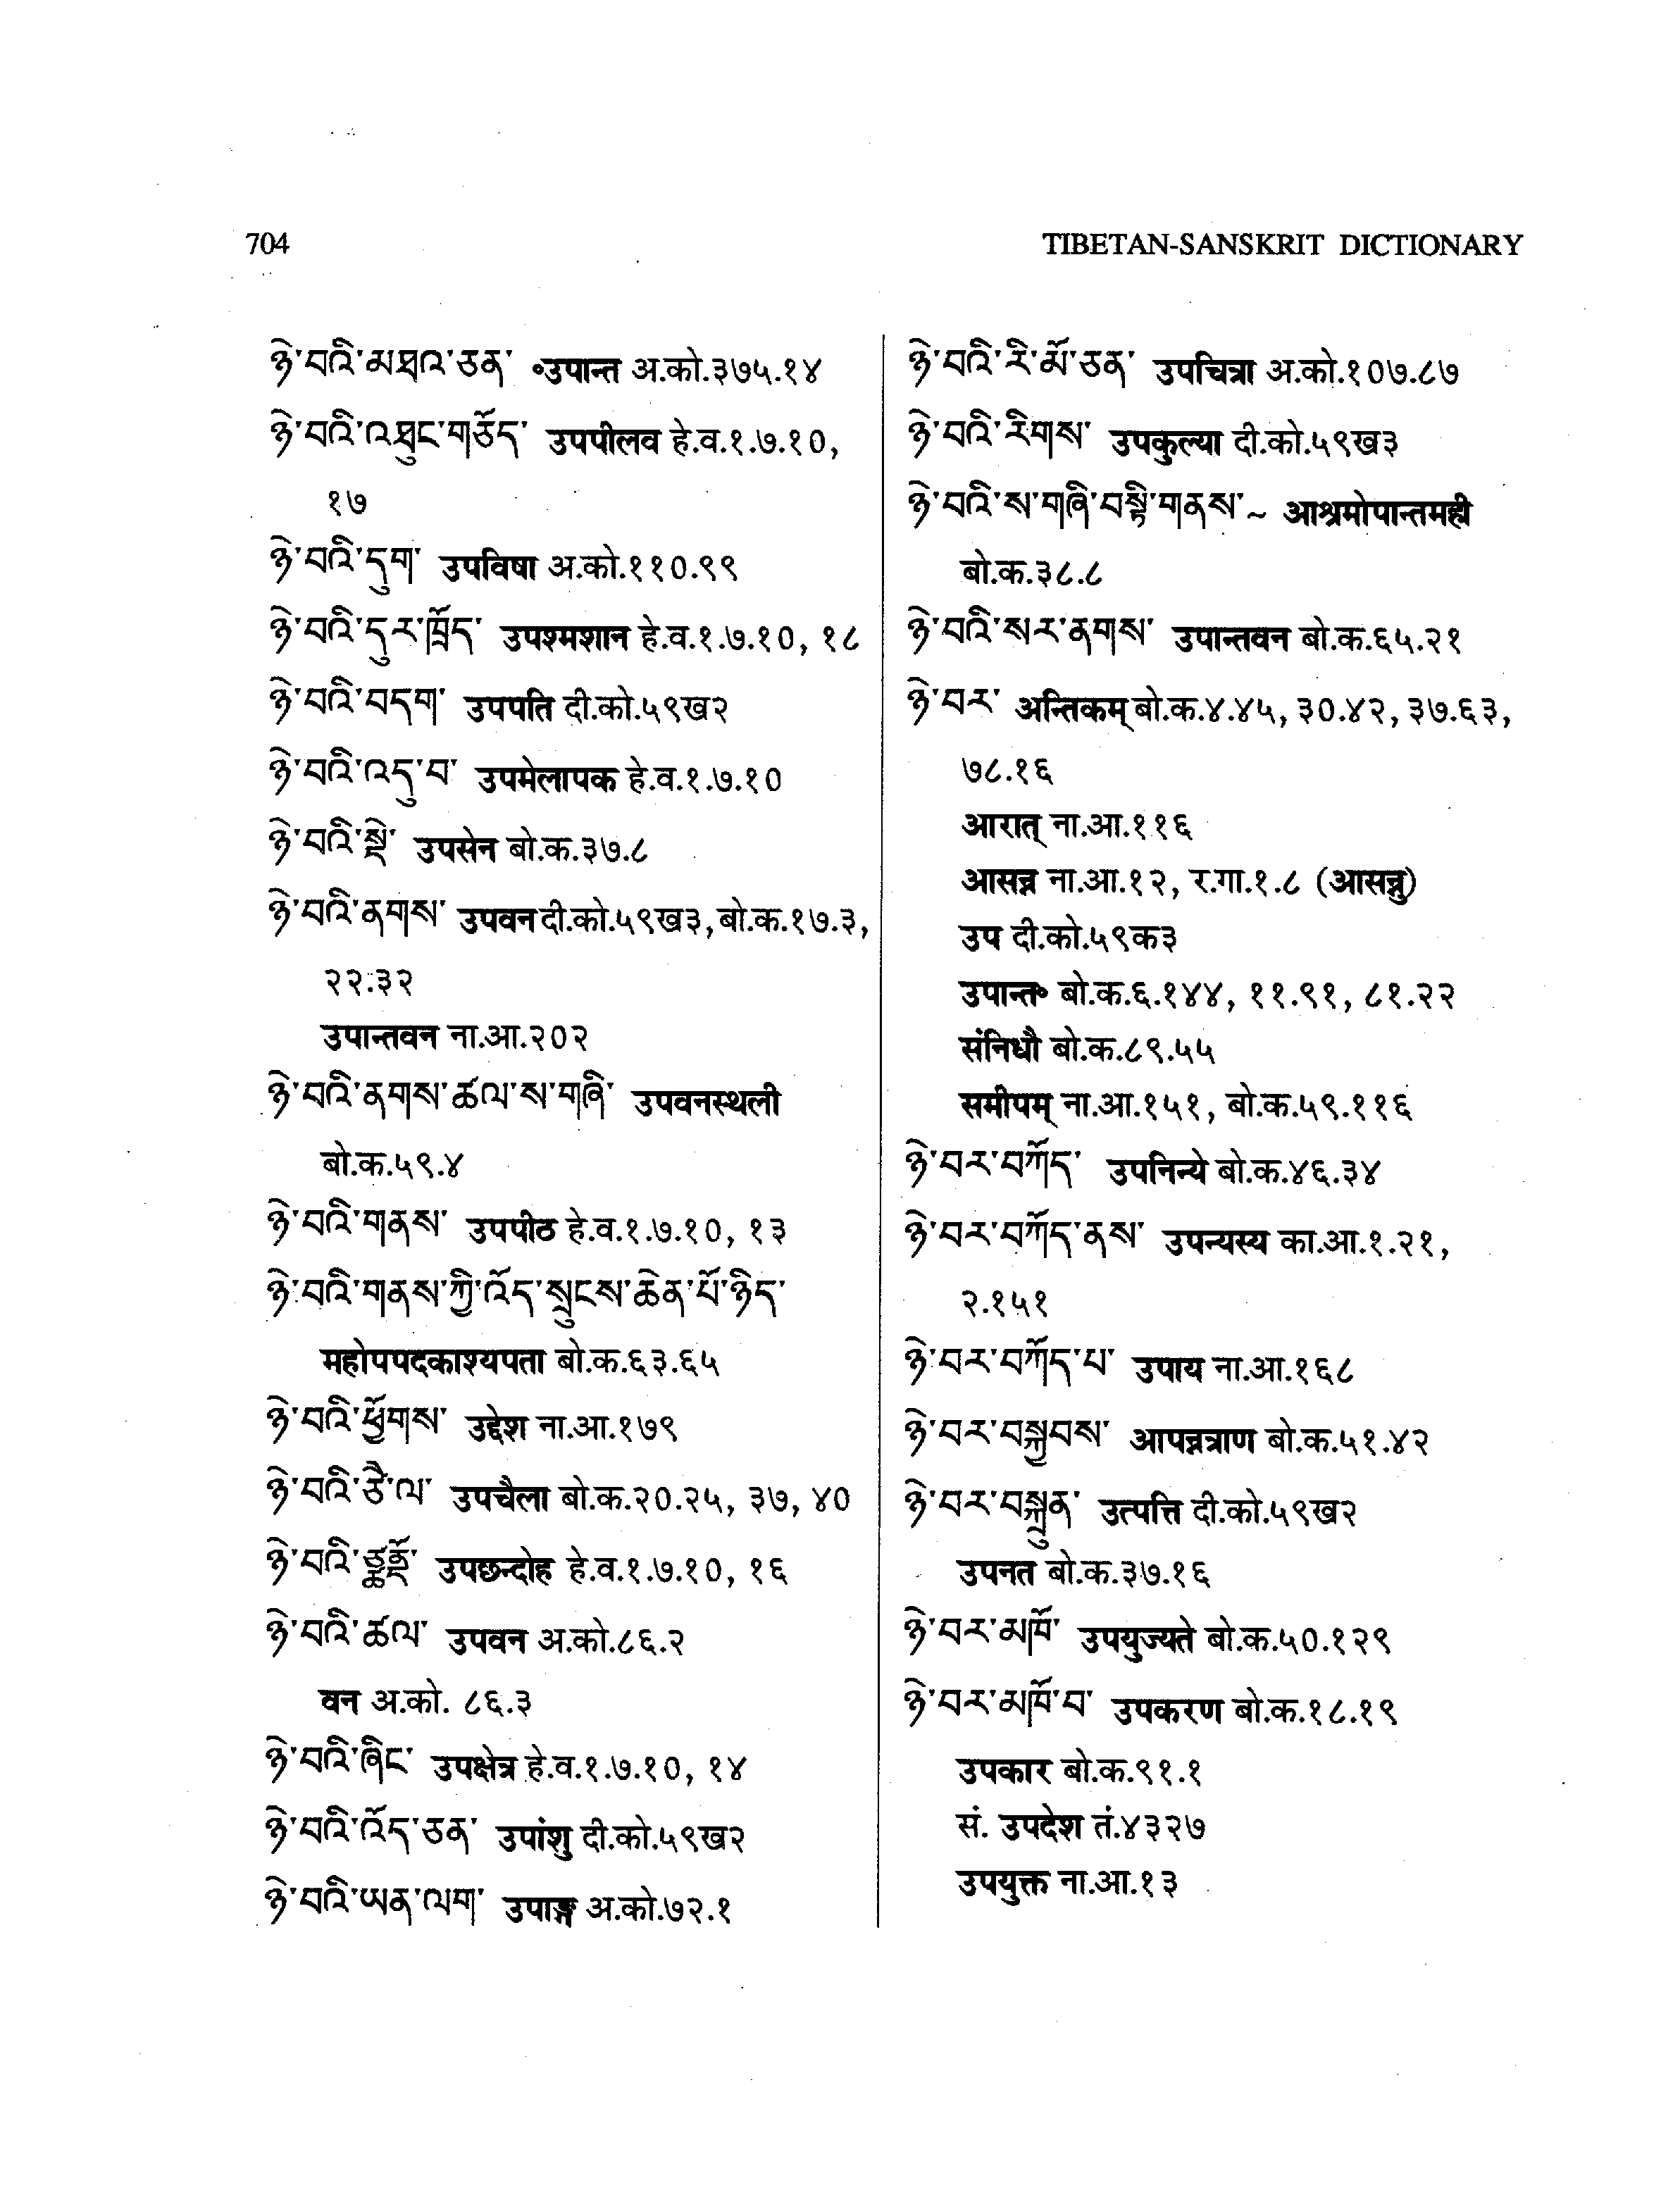 704
TIBETAN-SANSKRIT DICTIONARY
ཉེ་བའི་མཐའ་ཅན་ ॰उपान्त अ.को.३७५.१४
ཉེ་བའི་འཐུང་གཅོད་ उपपीलव हे.व.१.७.१०,
१७
ཉེ་བའི་དུག་ उपविषा अ.को.११०.९९
ཉེ་བའི་དུར་ཁྲོད་ उपश्मशान हे.व.१.७.१०, १८
ཉེ་བའི་བདག་ उपपति दी.को.५९ख२
ཉེ་བའི་འདུ་བ་ उपमेलापक हे.व.१.७.१०
ཉེ་བའི་སྡེ་ उपसेन बो.क.३७.८
ཉེ་བའི་ནགས་ उपवन दी.को.५९ख३, बो.क.१७.३,
२२.३२
उपान्तवन ना.आ.२०२
ཉེ་བའི་ནགས་ཚལ་ས་གཞི་ उपवनस्थली
बो.क.५९.४
ཉེ་བའི་གནས་ उपपीठ हे.व.१.७.१०, १३
ཉེ་བའི་གནས་ཀྱི་འོད་སྲུངས་ཆེན་པོ་ཉིད་
महोपपदकाश्यपता बो.क.६३.६५
ཉེ་བའི་ཕྱོགས་ उद्देश ना.आ.१७९
ཉེ་བའི་ཙཻ་ལ་ उपचैला बो.क.२०.२५, ३७, ४०
ཉེ་བའི་ཙྪནྡོ་ उपछन्दोह हे.व.१.७.१०, १६
ཉེ་བའི་ཚལ་ उपवन अ.को.८६.२
वन अ.को. ८६.३
ཉེ་བའི་ཞིང་ उपक्षेत्र हे.व.१.७.१०, १४
ཉེ་བའི་འོད་ཅན་ उपांशु दी.को.५९ख२
ཉེ་བའི་ཡན་ལག་ उपाङ्ग अ.को.७२.१
ཉེ་བའི་རི་མོ་ཅན་ उपचित्रा अ.को.१०७.८७
ཉེ་བའི་རིགས་ उपकुल्या दी.को.५९ख३
ཉེ་བའི་ས་གཞི་བསྟི་གནས་~ आश्रमोपान्तमही
बो.क.३८.८
ཉེ་བའི་སར་ནགས་ उपान्तवन बो.क.६५.२१
ཉེ་བར་ अन्तिकम् बो.क.४.४५, ३०.४२, ३७.६३,
७८.१६
आरात् ना.आ.११६
आसन्न ना.आ.१२, र.गा.१.८ (आसन्नु)
उप दी.को.५९क३
उपान्त॰ बो.क.६.१४४, ११.९१, ८१.२२
संनिधौ बो.क.८९.५५
समीपम् ना.आ.१५१, बो.क.५९.११६
ཉེ་བར་བཀོད་ उपनिन्ये बो.क.४६.३४
ཉེ་བར་བཀོད་ནས་ उपन्यस्य का.आ.१.२१,
२.१५१
ཉེ་བར་བཀོད་པ་ उपाय ना.आ.१६८
ཉེ་བར་བསྐྱབས་ आपन्नत्राण बो.क.५१.४२
ཉེ་བར་བསྐྲུན་ उत्पत्ति दी.को.५९ख२
उपनत बो.क.३७.१६
ཉེ་བར་མཁོ་ उपयुज्यते बो.क.५०.१२९
ཉེ་བར་མཁོ་བ་ उपकरण बो.क.१८.१९
उपकार बो.क.९१.१
सं. उपदेश तं.४३२७
उपयुक्त ना.आ.१३